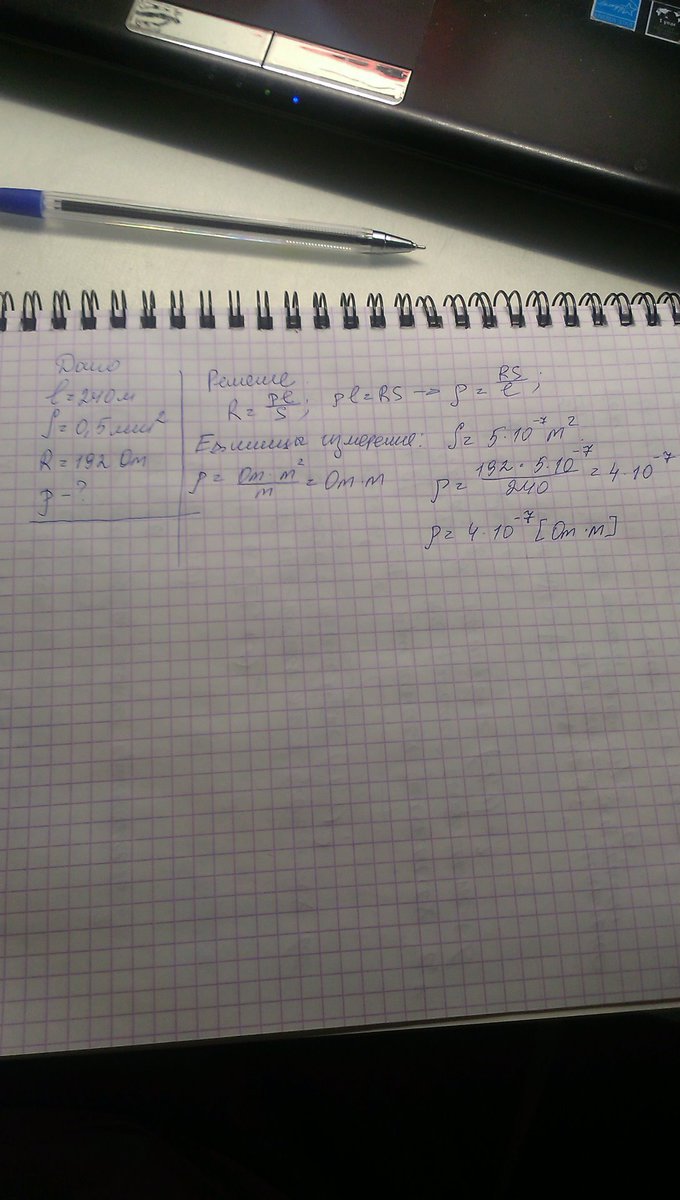 Дано
l = 240 м
S = 0,5 мм²
R = 192 Ом
ρ - ?
Решение.
R = ρl/S; ρl = RS → ρ = RS/l;
Единицы измерения: S = 5·10⁻⁷ м².
ρ = Ом·м²/м = Ом·м
ρ = 192·5·10⁻⁷/240 = 4·10⁻⁷
ρ = 4·10⁻⁷ [Ом·м]
1 year